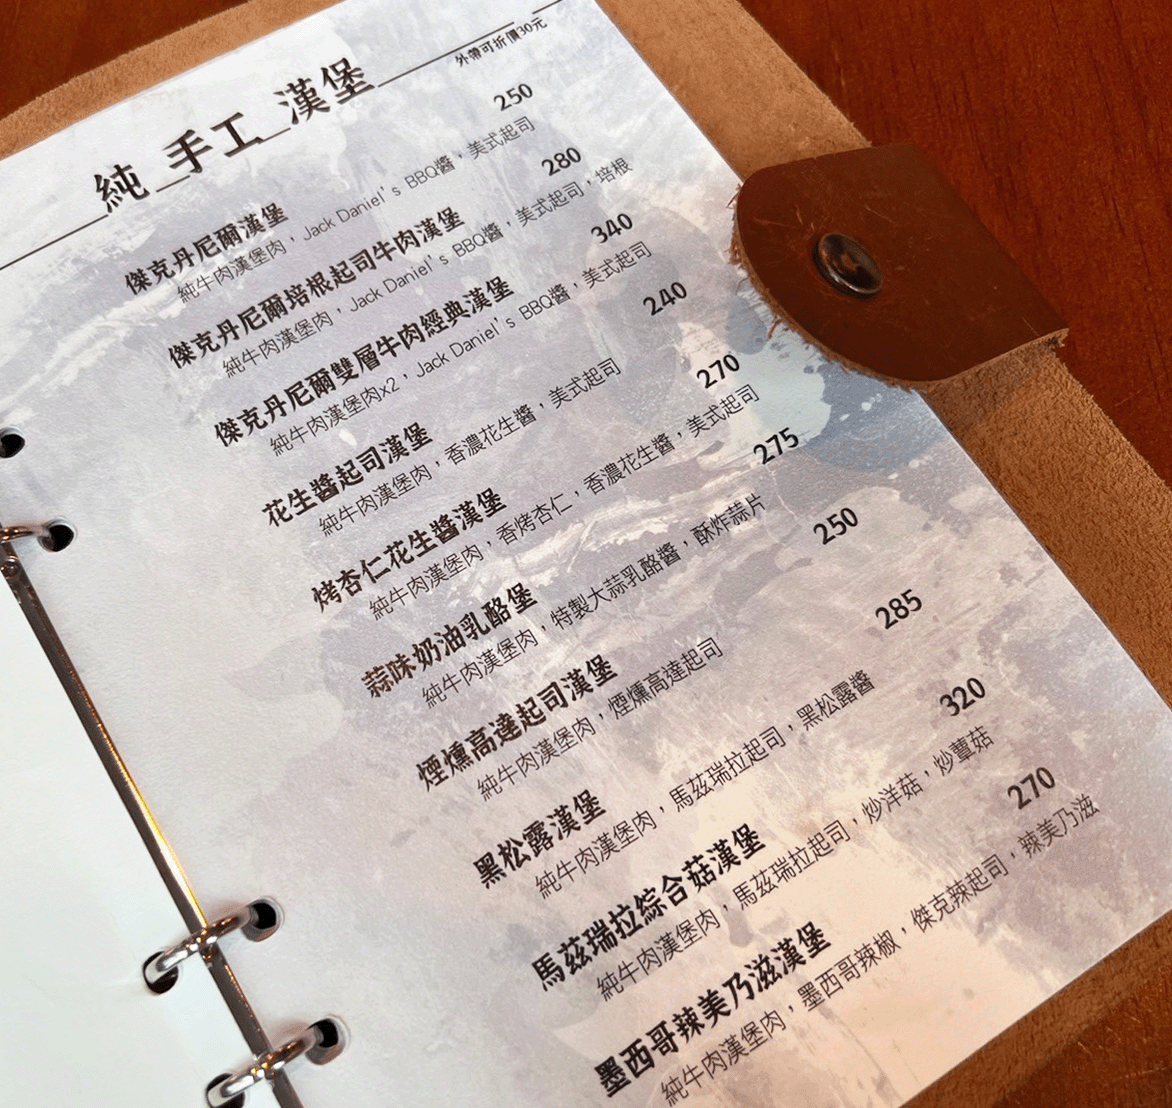 純_手工_漢堡
外帶可折價30元
傑克丹尼爾漢堡 250
純牛肉漢堡肉，Jack Daniel's BBQ醬，美式起司
傑克丹尼爾培根起司牛肉漢堡 280
純牛肉漢堡肉，Jack Daniel's BBQ醬，美式起司，培根
傑克丹尼爾雙層牛肉經典漢堡 340
純牛肉漢堡肉x2，Jack Daniel's BBQ醬，美式起司
花生醬起司漢堡 240
純牛肉漢堡肉，香濃花生醬，美式起司
烤杏仁花生醬漢堡 270
純牛肉漢堡肉，香烤杏仁，香濃花生醬，美式起司
蒜味奶油乳酪堡 275
純牛肉漢堡肉，特製大蒜乳酪醬，酥炸蒜片
煙燻高達起司漢堡 250
純牛肉漢堡肉，煙燻高達起司
黑松露漢堡 285
純牛肉漢堡肉，馬茲瑞拉起司，黑松露醬
馬茲瑞拉綜合菇漢堡 320
純牛肉漢堡肉，馬茲瑞拉起司，炒洋菇，炒蕈菇
墨西哥辣美乃滋漢堡 270
純牛肉漢堡肉，墨西哥辣椒，傑克辣起司，辣美乃滋